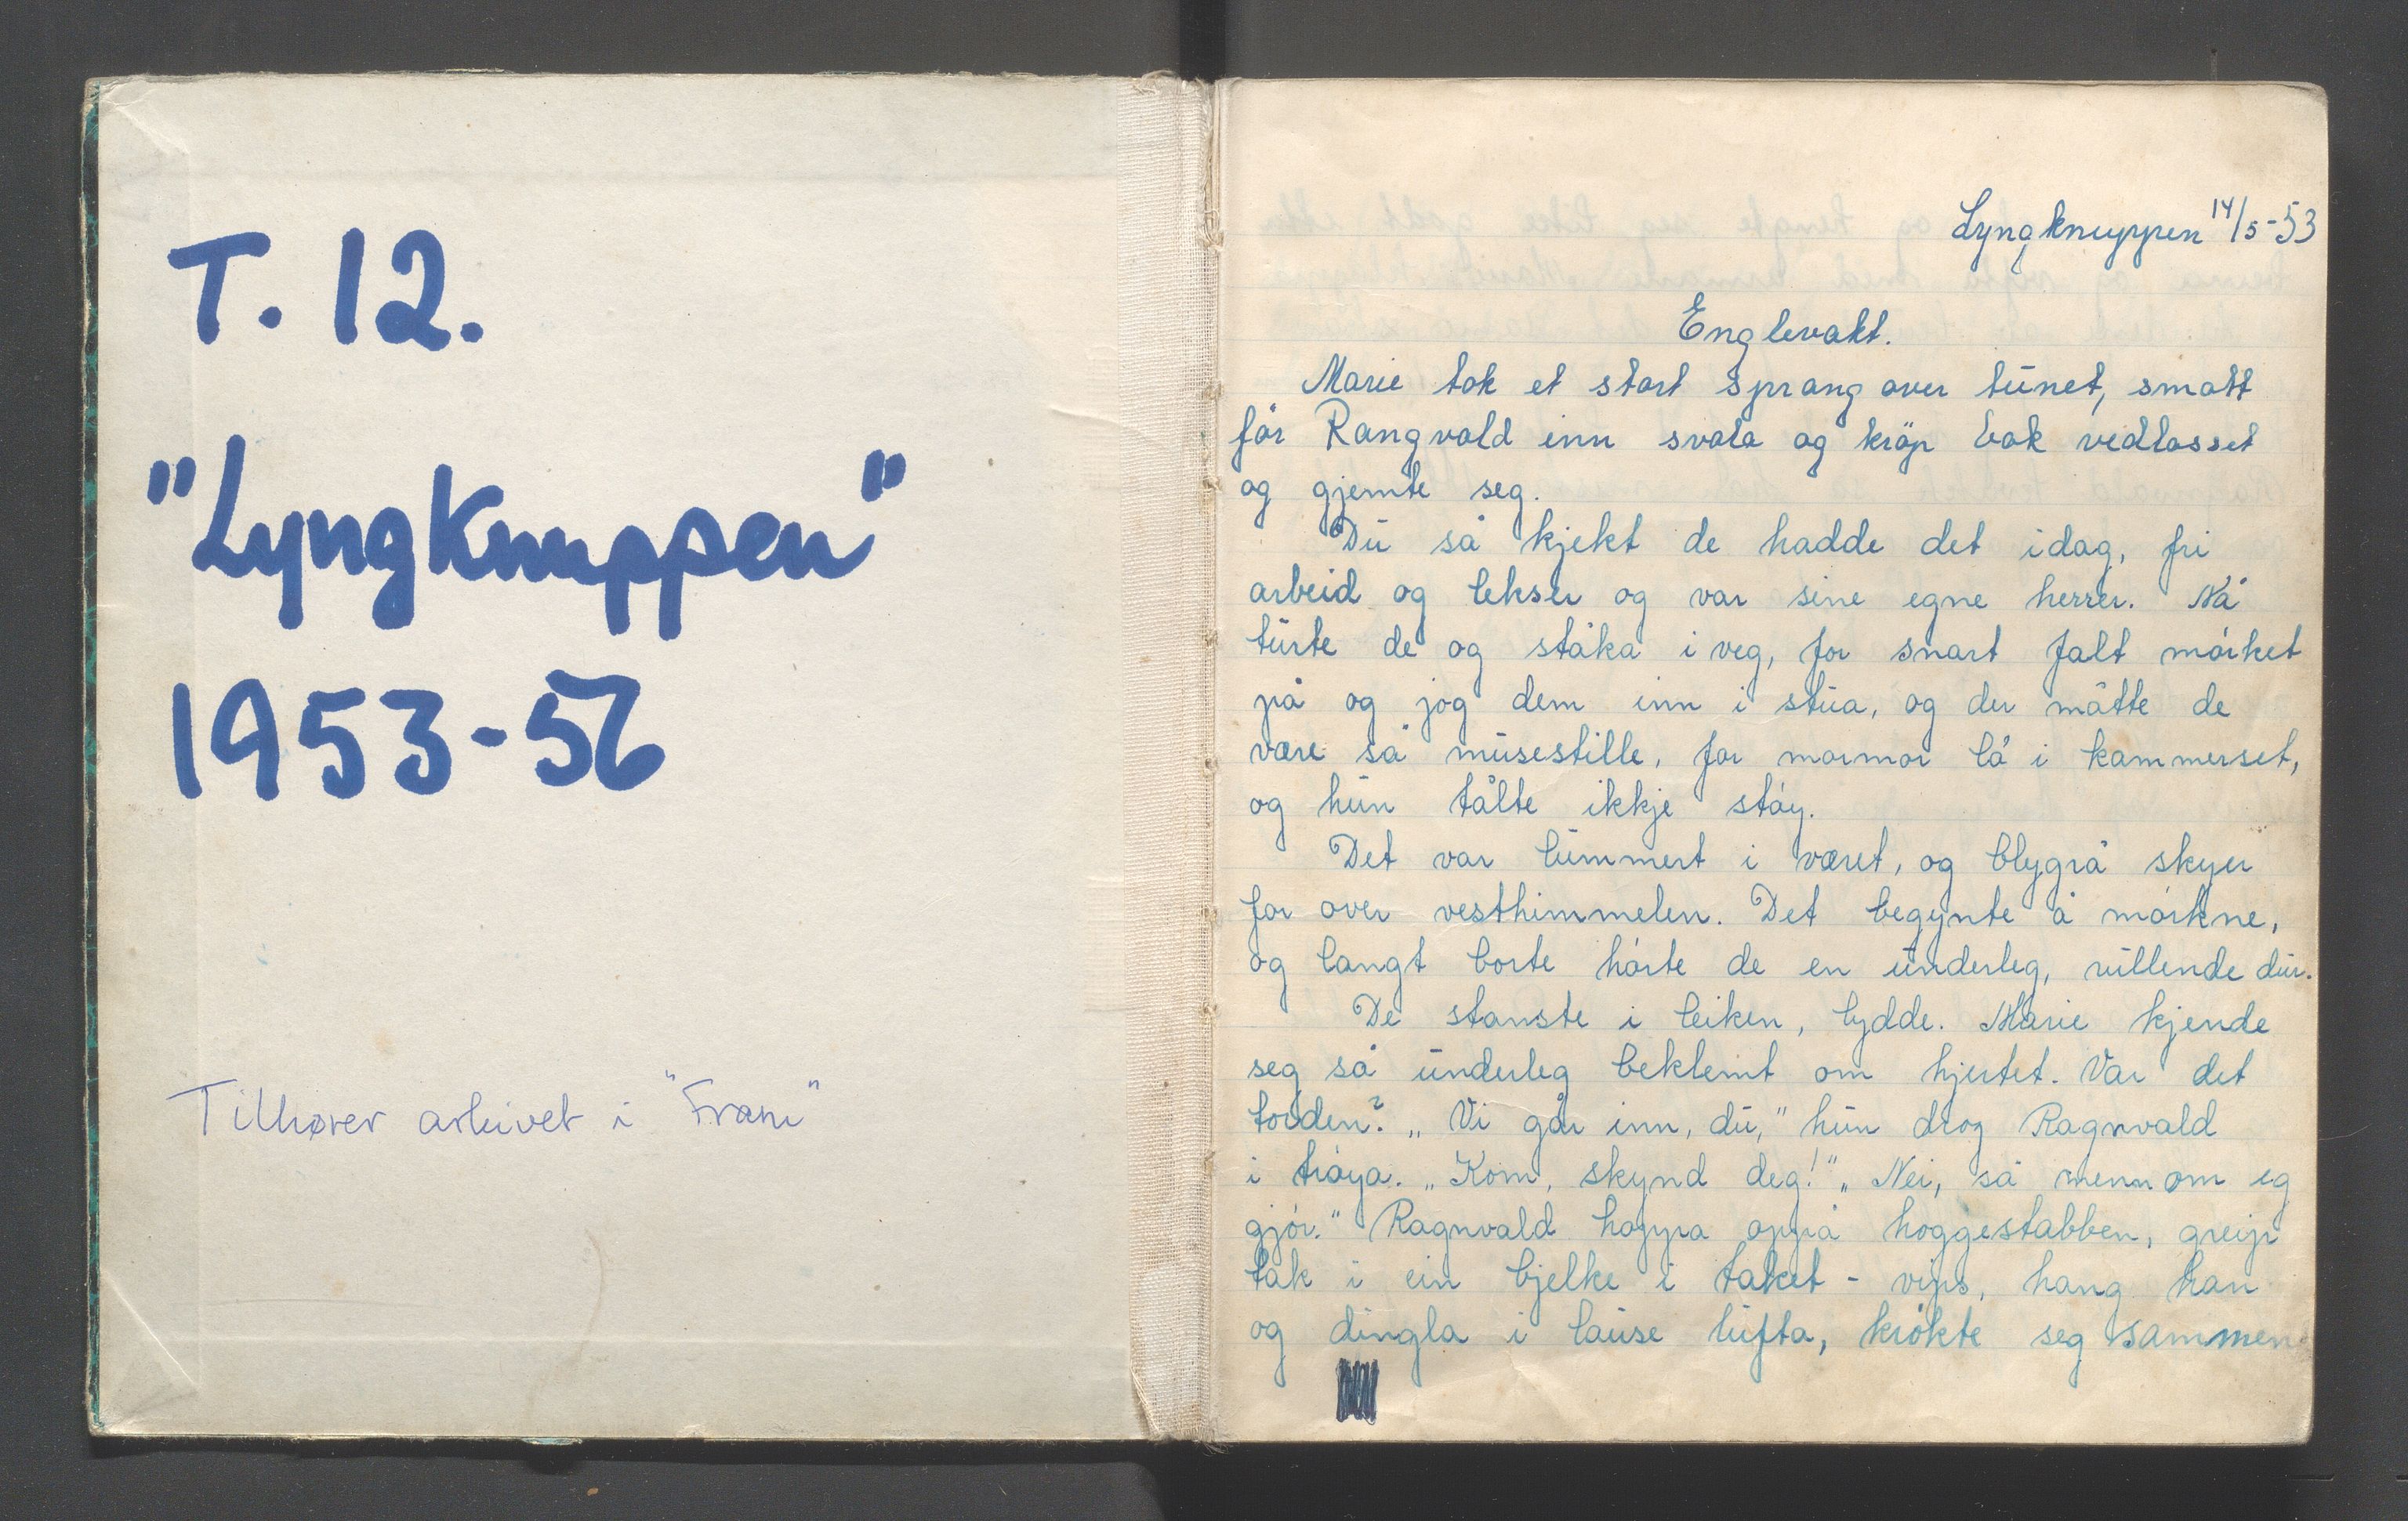 T. 12.
"Lyngknuppen"
1953-56
Tilhører arkivet i "Fram"
Lyngknuppen 14/5-53
Englevakt.
Marie tok et stort sprang over tunet, smatt
før Rangvald inn svala og krøp bak vedlasset
og gjemte seg.
Du så kjekt de hadde det idag, fri
arbeid og lekser og var sine egne herrer. Nå
turte de og ståka i veg, for snart falt mørket
på og jog dem inn i stua, og der måtte de
være så musestille, for mormor lå i kammerset,
og hun tålte ikkje støy.
Det var lummert i været, og blygrå skyer
for over vesthimmelen. Det begynte å mørkne,
og langt borte hørte de en underleg, rullende dur.
De stanste i leiken, lydde. Marie kjende
seg så underleg beklemt om hjertet. Var det
torden? „Vi går inn, du," hun drog Ragnvald
i trøya. „Kom, skynd deg!" „Nei, så menn om eg
gjør." Ragnvald hoppa oppå hoggestabben, greip
tak i ein bjelke i taket - vips, hang han
og dingla i lause lufta, krøkte seg sammen